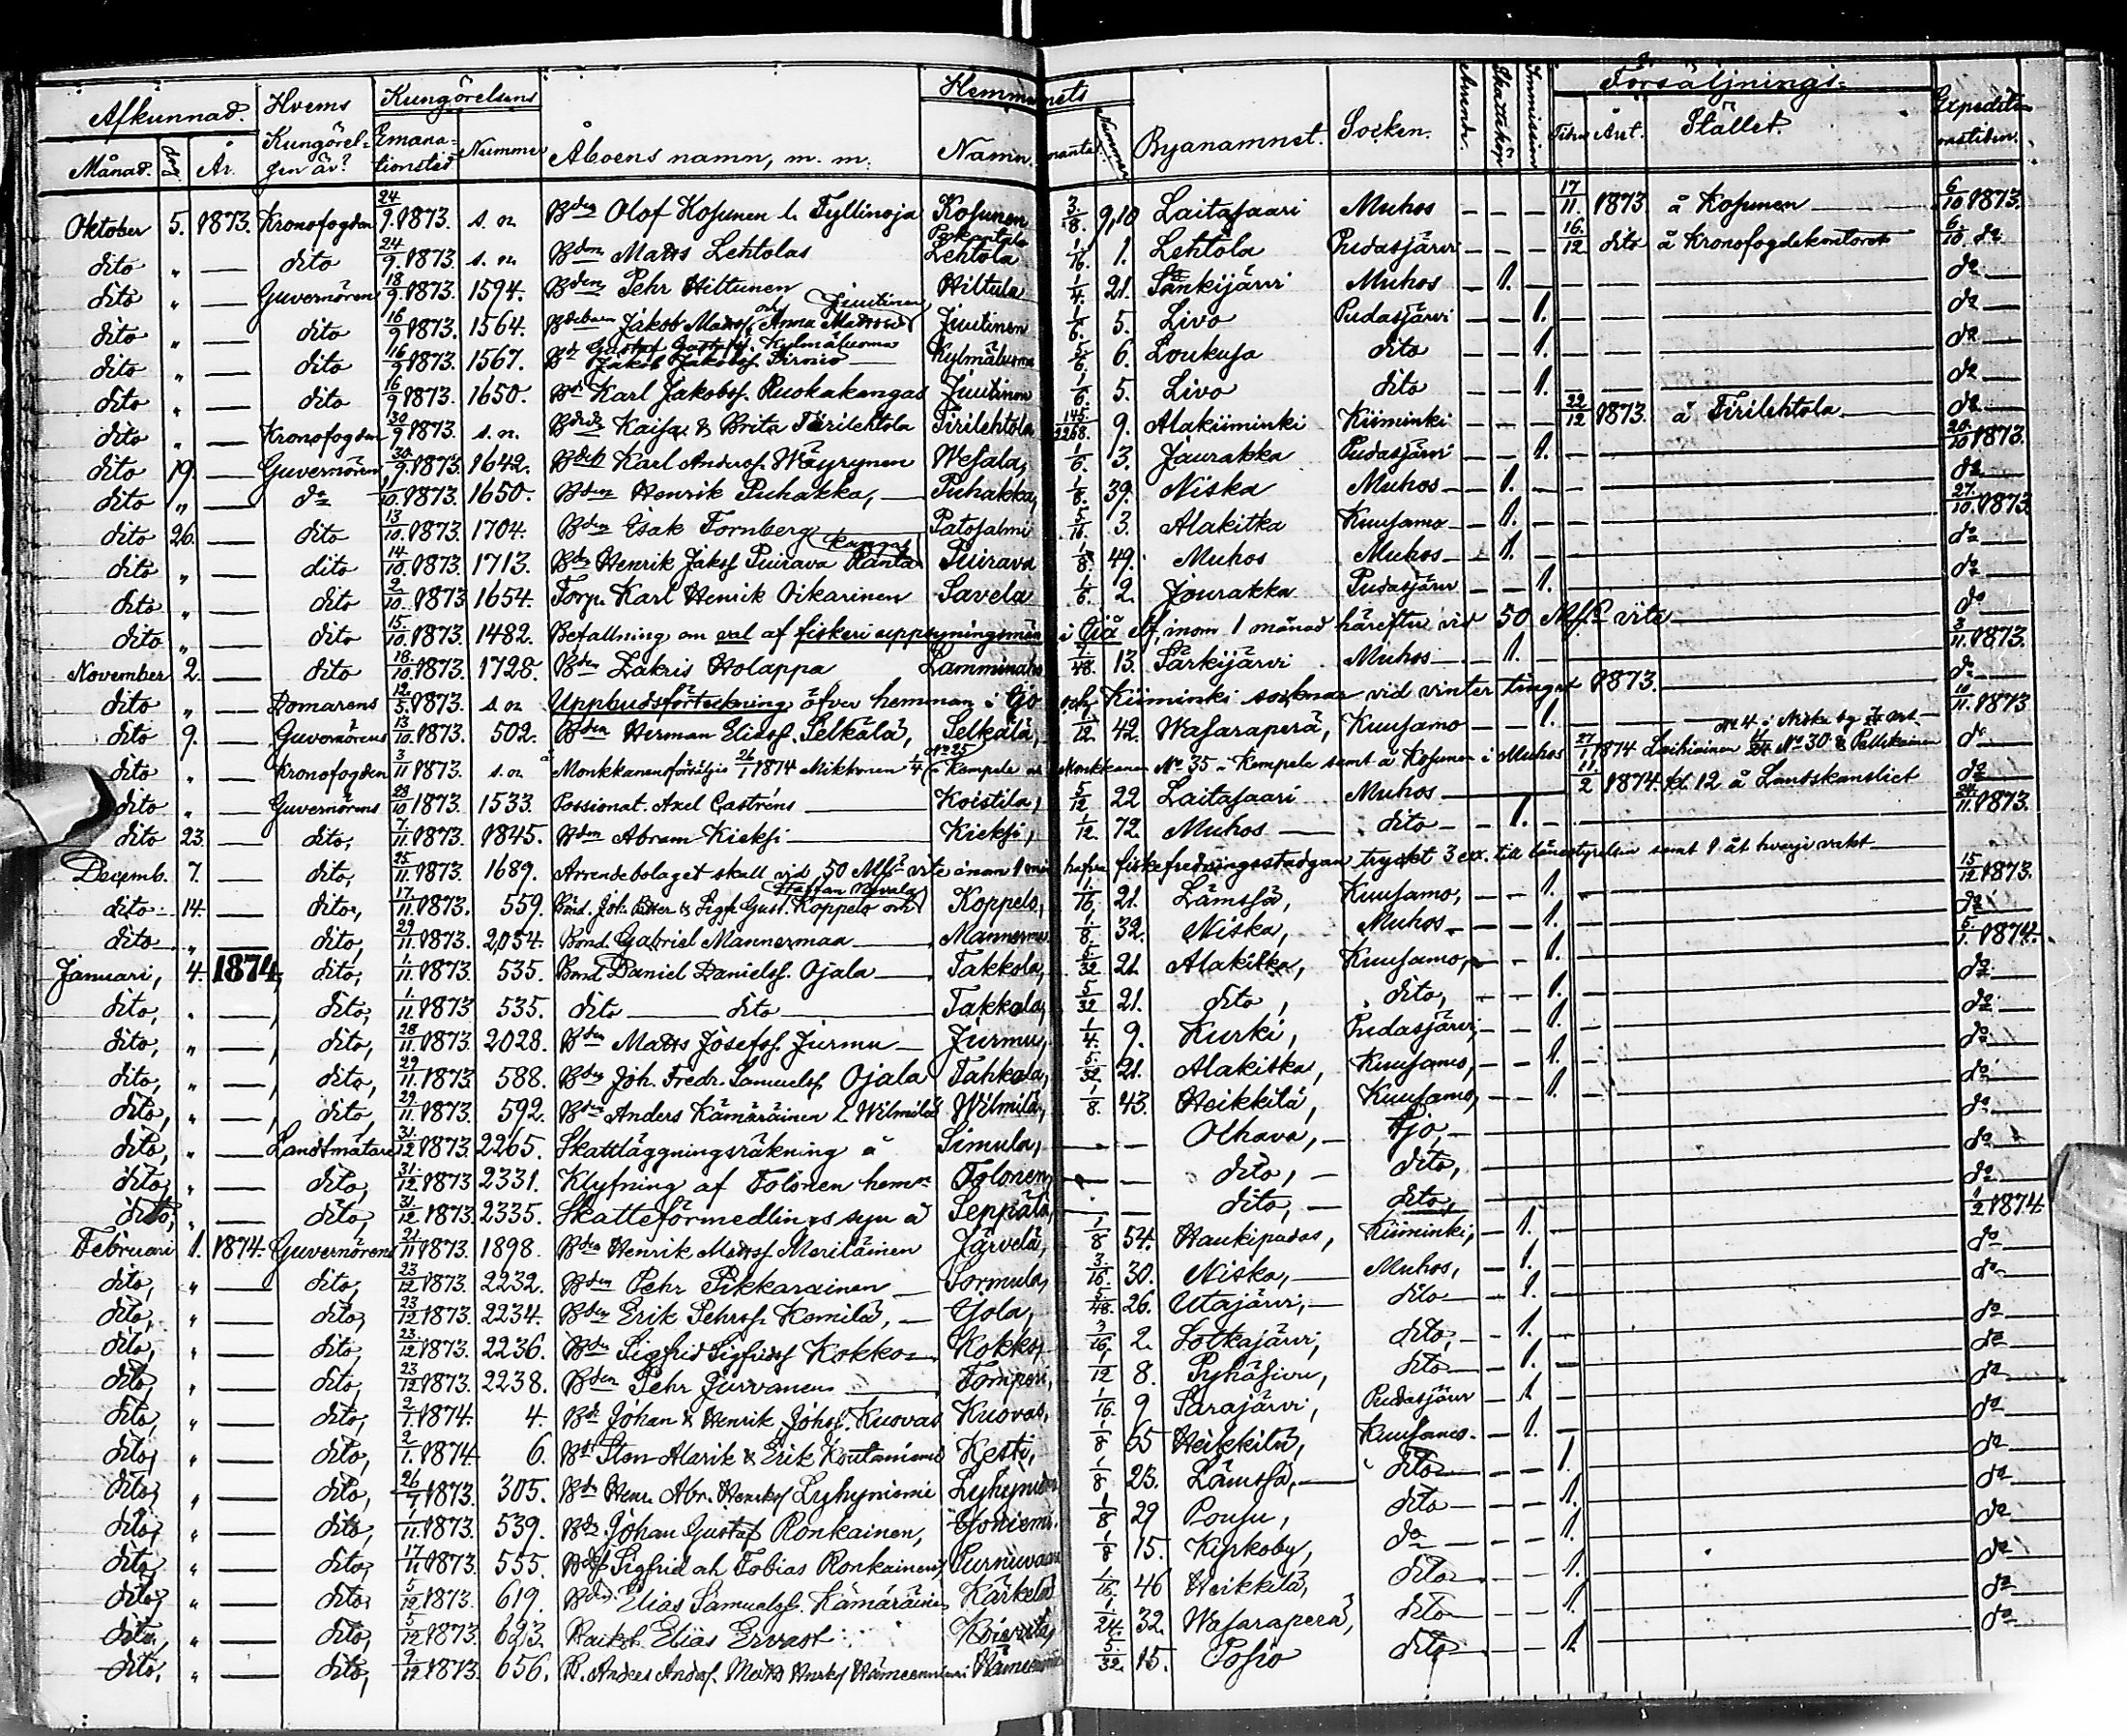 Afkunnad. Hvems Kungörelsens Hemmanets Försäljnings- Expeditionstiden.
Månad. År. Kungörelsen är? Emanationstid Nummer Åboens namn, m. m. Namn. mantal. Nummer Byanamnet. Socken. Arrende. Skatteköp Immission Tiden Året. Stället.
Oktober 5. 1873. Kronofogden 24/9. 1873. s. n. Bden Olof Kosunen l. Tyllinoja Kosunen 3/8. 9,10 Laitasaari Muhos — — — 17/11. 1873 å Kosunen 6/10 1873.
dito „ — dito 24/9. 1873. s. n. Bden Matts Lehtolas Lehtola 1/16. 1. Lehtola Pudasjärvi — — — 16./12 dito å Kronofogdekontoret 6/10. do
dito „ — Guvernören 18/9. 1873. 1594. Bden Pehr Hiltunen Hiltula 1/4. 21. Sankijärvi Muhos — 1. — do
dito „ — dito 16/9 1873. 1564. Jakob Mattss. och Anna Juutinen Juutinen 1/6. 5. Livo Pudasjärvi — — 1. do
dito „ — dito 16/9 1873. 1567. Bd Gustaf Kylmäluoma Jakob Jakobss. Kylmäluoma 5/6. 6. Loukusa dito — — 1. do
dito „ — dito 16/9 1873. 1650. Bd Karl Jakobss. Ruokakangas Juutinen 1/6. 5. Livo dito — — 1. do
dito „ — Kronofogden 30/9 1873. s. n. Kaisa & Brita Tirilehtola Tirilehtola 145/2268. 9. Alakiiminki Kiiminki 22/12 1873. å Tirilehtola do
dito 19. — Guvernören 30/9. 1873. 1642. Karl Anderss. Wäyrynen Wesala, 1/6. 3. Jaurakka Pudasjärvi — — 1. 20./10 1873.
dito „ — do 11/10. 1873. 1650. Bden Henrik Puhakka, — Puhakka, 1/8. 39. Niska Muhos — 1. — do
dito 26. — dito 13/10. 1873. 1704. Bden Esak Fornberg Patosalmi 5/16. 3. Alakitka Kuusamo — 1. — 27./10. 1873.
dito „ — dito 14/10. 1873. 1713. Bden Henrik Jakss. Puirava Ranta Puirava 1/8 49. Muhos Muhos — 1. — do
dito „ — dito 9/10. 1873. 1654. Torp. Karl Henrik Oikarinen Savela 1/6. 2. Jourakka Pudasjärvi — — 1. do
dito „ — dito 15/10. 1873. 1482. Befallning om val af fiskeri uppsyningsmän i Ijå elf inom 1 månad härefter vid 50 Mk vite do
November 2. — dito 18/10. 1873. 1728. Bden Zakris Holappa Lamminaho 7/48. 13. Särkijärvi Muhos — 1. — 3/11. 1873.
dito „ — Domarens 12/5. 1873. s. n. Uppbudsförteckning öfver hemman i Ijo och Kiiminki socknar vid vintertinget 1873. do
dito 9. — Guvernörens 13/10. 1873. 502. Bden Herman Eliass. Selkälä, Selkälä, 1/12 42. Wasaraperä, Kuusamo — — 1. 10/11. 1873
dito „ — Kronofogden 3/11 1873. s. n. Monkkanen försäljes 26/1 1874 Mikkonen 1/4 No 25 i Kempele och Monkkanen No 35 i Kempele samt å Kosunen i Muhos 27/1 1874 Laihiainen No 30 & Pellikainen do
dito „ — Guvernörens 28/10 1873. 1533. Possionat. Axel Castréns Koistila, 5/12 22 Laitasaari Muhos 11/2 1874. kl. 12 å Landskansliet do
dito 23. — dito, 7/11. 1873. 1845. Bden Abram Kieksi Kieksi, 1/12. 72. Muhos dito — 1. — 24/11. 1873.
Decemb. 7. — dito, 25/11. 1873. 1689. Arrendebolaget skall vid 50 Mk vite inom 1 hafva fiskefredningsstadgan tryckt 3 ex. till länestyrelsen samt 1 åt hvarje vrakt
dito 14. — dito, 17/11. 1873. 559. Bönd. Joh. Petter & Sigfr. Gust. Koppelo och Staffan Koppelo, 1/16. 21. Lämsä, Kuusamo, — — 1. 15/12 1873.
dito „ — dito, 29/11. 1873. 2,054. Bond. Gabriel Mannermaa Mannermaa 1/8. 32. Niska, Muhos — — 1. do
Januari, 4. 1874, dito, 1./11. 1873. 535. Bond Daniel Danielss. Ojala Takkola, 5/32 21. Alakitka, Kuusamo, — — 1. 5/1. 1874.
dito, „ — dito, 1./11. 1873 535. dito dito Takkala, 5/32 21. dito, dito, — — 1. do
dito, „ — dito, 28/11. 1873. 2028. Bden Matts Josefss. Jurmu Jurmu, 1/4. 9. Kurki, Pudasjärvi, — — 1. do
dito, „ — dito, 29/11. 1873. 588. Bden Joh. Fredr. Samuelss. Ojala Tahkola, 5/32. 21. Alakitka, Kuusamo, — — 1. do
dito, „ — dito, 29/11. 1873. 592. Bden Anders Kämäräinen l. Wilmilä Wilmilä, 1/8. 43. Heikkilä, Kuusamo, — — 1. do
dito, „ — Landtmätare 31/12 1873. 2265. Skattläggningsräkning å Simula, — — Olhava, — Ijo, — do
dito, „ — dito, 31./12. 1873 2331. Klyfning af Tolonen hemn Tolonen, — — dito, — dito, do
dito, „ — dito, 31/12 1873. 2335. Skatteförmedlings syn å Seppälä, — dito, — dito, do
Februari 1. 1874. Guvernörens 21/11 1873. 1898. Bden Henrik Mattss. Meriläinen Järvelä, 1/8 54. Haukipudas, Kiiminki, — 1. 1/2 1874.
dito, „ — dito, 23/12 1873. 2232. Bden Pehr Pikkarainen Sormula, 3/16. 30. Niska, Muhos, — 1. do
dito, „ — dito, 23/12 1873. 2234. Bden Erik Pehrss. Komila, — Ojola, 5/48. 26. Utajärvi, — dito — 1. do
dito, „ — dito, 23/12 1873. 2236. Bden Sigfrid Sigfridss. Kokko Kokko, 3/16. 2. Sotkajärvi, dito, — 1. do
dito, „ — dito, 23/12 1873. 2238. Bden Pehr Jurvanen Tomperi, 1/12 8. Pyhäsivu, dito — 1. — do
dito, „ — dito, 2/1. 1874. 4. Bd Johan & Henrik Johss. Kuovas Kuovas, 1/16. 9 Sarajärvi, Pudasjärvi — 1 do
dito, „ — dito, 2/1. 1874 6. Bd Sten Alarik & Erik Koutaniemi Kesti, 1/8 65 Heikkilä, Kuusamo. — 1. do
dito, „ — dito, 26/7 1873. 305. Bden Henr. Abr. Henrikss. Lyhyniemi Lyhyniemi 1/8 23. Lämsä, dito — — 1. do
dito, „ — dito, 1/11. 1873. 539. Bden Johan Gustaf Ronkainen, 1/8 29 Pousu, dito — — 1. do
dito, „ — dito, 17/11 1873. 555. Sigfrid och Tobias Ronkainen, Purnuvaara 1/8 15. Kyrkoby, do — — 1. do
dito, „ — dito 5/12 1873. 619. Bden Elias Samuelss. Kämäräinen Kärkelä 1/16. 46 Heikkilä, dito — — 1. do
dito, „ — dito, 5/12 1873. 623. Elias Ervast 1/24. 32. Wasaraperä, dito — — 1. do
dito, „ — dito, 9/12 1873. 656. Anders Anderss. Matts Henrikss. Hämeenniemi 5/32. 15. Posio dito — — 1.